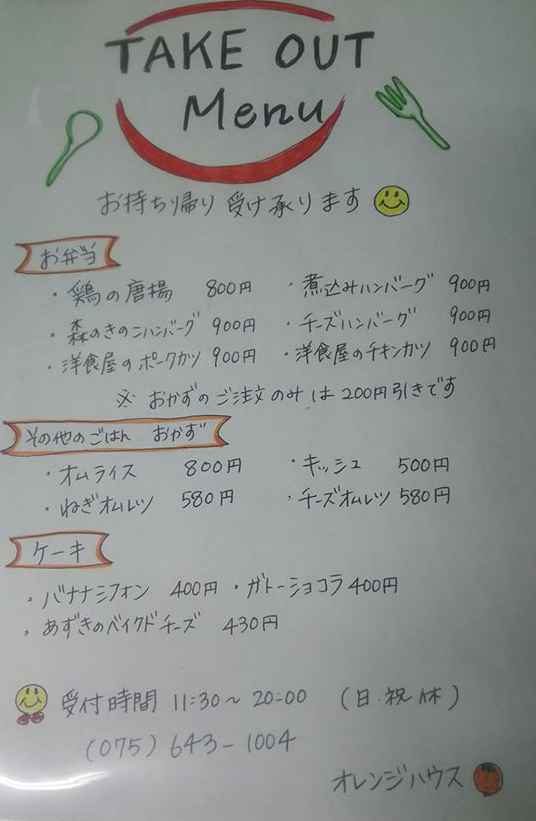 TAKE OUT
Menu
お持ち帰り 受け承ります
お弁当
・鶏の唐揚 800円 ・煮込みハンバーグ 900円
・森のきのこハンバーグ 900円 ・チーズハンバーグ 900円
・洋食屋のポークカツ 900円 ・洋食屋のチキンカツ 900円
※ おかずのご注文のみは200円引きです
その他のごはん.おかず
・オムライス 800円 ・キッシュ 500円
・ねぎオムレツ 580円 ・チーズオムレツ 580円
ケーキ
・バナナシフォン 400円 ・ガトーショコラ 400円
・あずきのベイクドチーズ 430円
受付時間 11:30〜20:00 (日.祝休)
(075) 643-1004
オレンジハウス